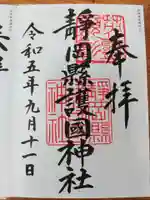 奉拝
靜岡縣護國神社
令和五年九月十一日